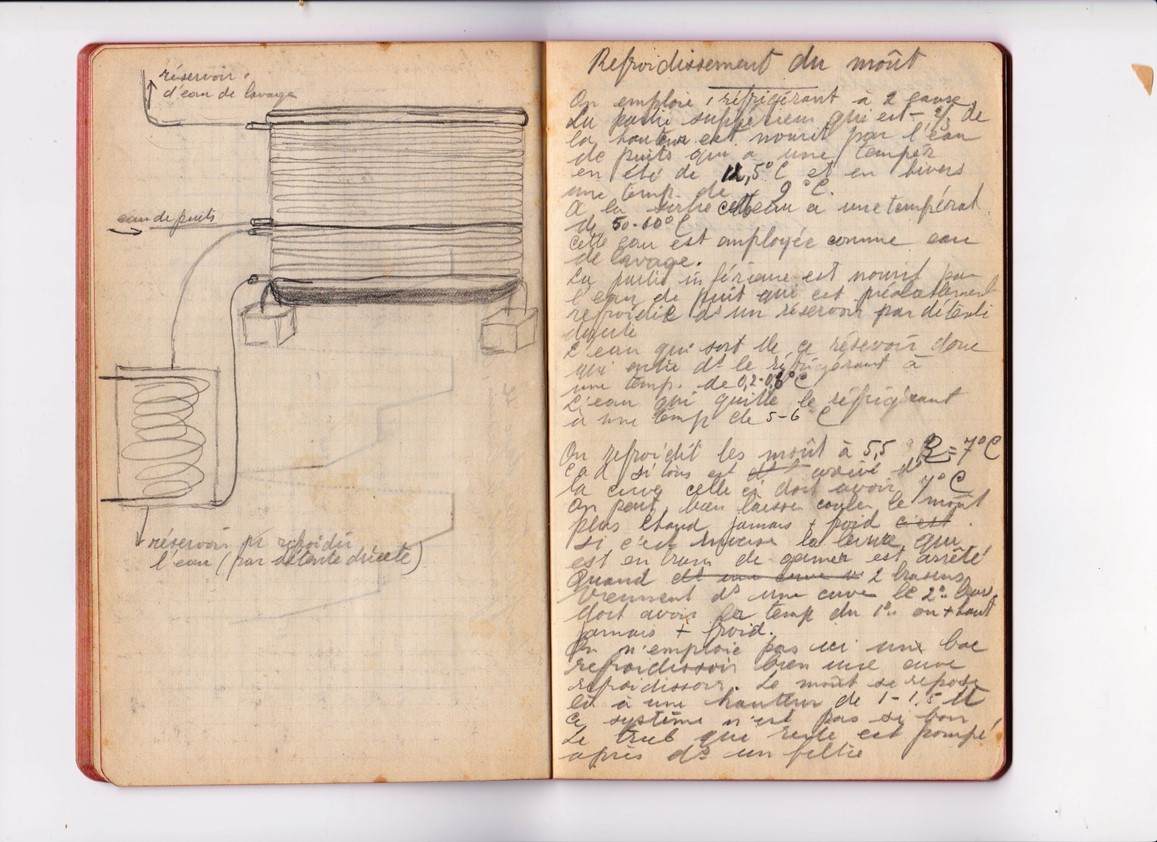 réservoir
d'eau de lavage
eau de puits
réservoir pr refroidir
l'eau (par détente directe)
Refroidissement du moût
On emploie 1 réfrigérant à 2 eaux.
La partie supérieur qui est de
la hauteur est nourit par l'eau
de puits qui a une temper
en été de 12,5°C et en hivers
une temp. de 9°C.
A la sortie cette eau a une températ
de 50-60°C
cette eau est employée comme eau
de lavage.
La partie inférieure est nourit par
l'eau de puit qui est préalablement
refroidie ds un réservoir par détente
directe
L'eau qui sort de ce réservoir donc
qui entre ds le réfrigérant à
une temp. de 0,2-0,6°C
L'eau qui quitte le réfrigérant
a une temp de 5-6°C
On refroidit les moût à 5,5 R = 7°C
c a d si tous est arrivé ds
la cuve celle ci doit avoir 7°C
On peut bien laisser couler le moût
plus chaud jamais + froid c'est
si c'est inverse la levure qui
est en train de germer est arrêté
Quand ds une cuve 2 brassins
viennent ds une cuve le 2e bras.
doit avoir la temp du 1er ou + haut
jamais + froid.
On n'emploie pas ici une bac
refroidissoir bien une cuve
refroidissoir. Le moût se repose
là à une hauteur de 1-1,5 M
ce système n'est pas si bon
Le trub qui reste est pompé
après ds un filtre